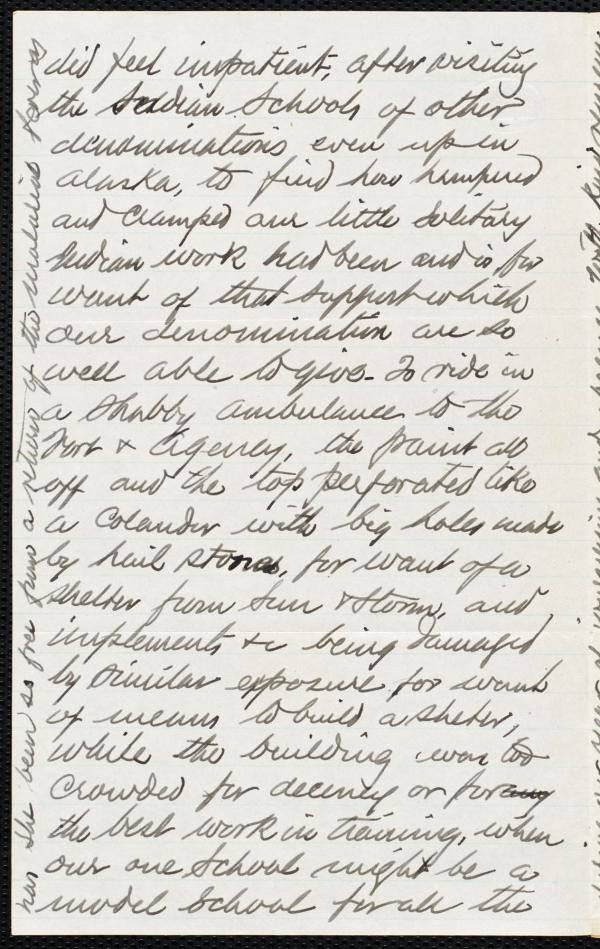 did feel impatient, after visiting
the Indian Schools of other
denominations even up in
Alaska, to find how hampered
and cramped our little solitary
Indian work had been and is, for
want of that support which
our denomination are so
well able to give. To ride in
a shabby ambulance to the
Fort & Agency, the paint all
off and the top perforated like
a colander with big holes made
by hail stones, for want of a
shelter from sun & storm, and
implements &c being damaged
by similar exposure for want
of means to build a shelter,
while the building was too
crowded for decency or for any
the best work in training, when
our one School might be a
model School for all the
has she been so free from a return of the malarial